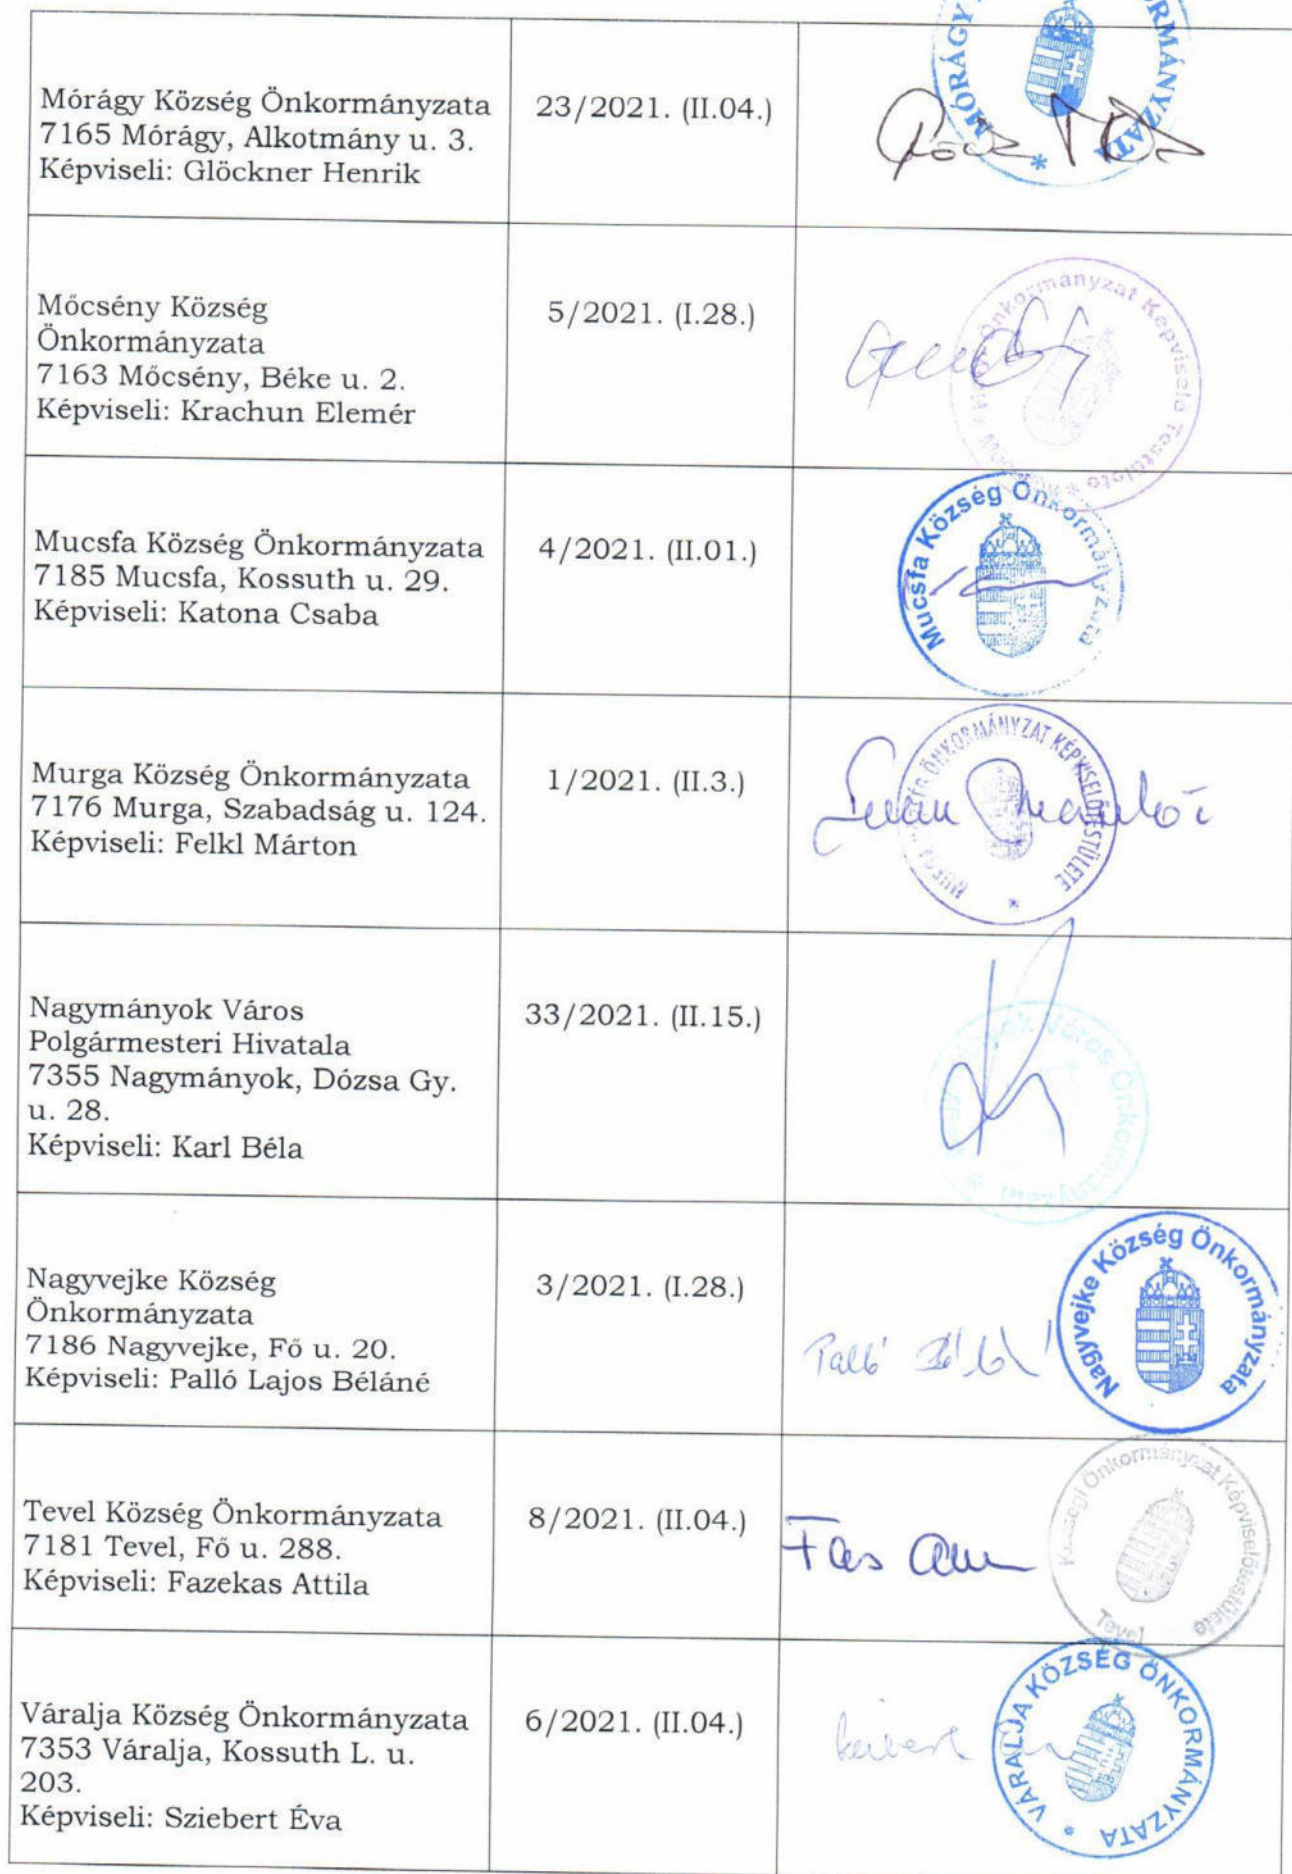 MÓRÁGY
ORMÁNYZATA *
Mórágy Község Önkormányzata
7165 Mórágy, Alkotmány u. 3.
Képviseli: Glöckner Henrik
23/2021. (II.04.)
Mőcsény Község
Önkormányzata
7163 Mőcsény, Béke u. 2.
Képviseli: Krachun Elemér
5/2021. (I.28.)
Önkormányzat Képviselő Testülete *
Mucsfa Község Önkormányzata
7185 Mucsfa, Kossuth u. 29.
Képviseli: Katona Csaba
4/2021. (II.01.)
Mucsfa Község Önkormányzata
Murga Község Önkormányzata
7176 Murga, Szabadság u. 124.
Képviseli: Felkl Márton
1/2021. (II.3.)
ÖNKORMÁNYZAT KÉPVISELŐTESTÜLETE *
Nagymányok Város
Polgármesteri Hivatala
7355 Nagymányok, Dózsa Gy.
u. 28.
Képviseli: Karl Béla
33/2021. (II.15.)
Város Önkormányzati *
Nagyvejke Község
Önkormányzata
7186 Nagyvejke, Fő u. 20.
Képviseli: Palló Lajos Béláné
3/2021. (I.28.)
Palló
Nagyvejke Község Önkormányzata
Tevel Község Önkormányzata
7181 Tevel, Fő u. 288.
Képviseli: Fazekas Attila
8/2021. (II.04.)
Községi Önkormányzat Képviselőtestülete
Tevel
Váralja Község Önkormányzata
7353 Váralja, Kossuth L. u.
203.
Képviseli: Sziebert Éva
6/2021. (II.04.)
VÁRALJA KÖZSÉG ÖNKORMÁNYZATA *